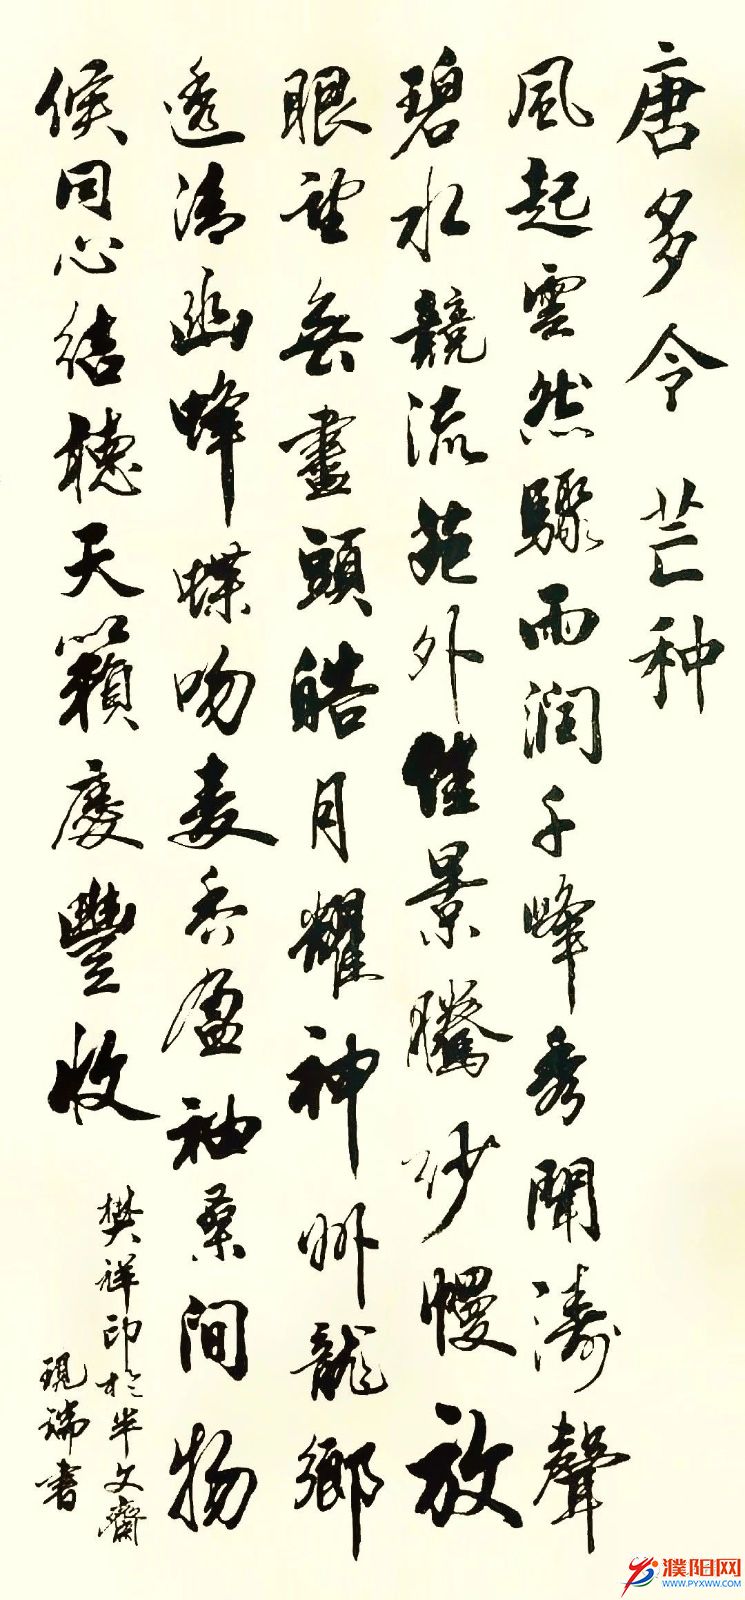 唐多令 芒种
風起雲然驟雨润千峰秀聞濤聲
碧水競流苑外佳景騰纱幔放
眼望無盡頭皓月耀神州龍鄉
透清幽蜂蝶吻麦香盈袖桑间物
候同心结聴天籟慶豐收
樊祥印於半文齋
現瑞書
濮阳网
WWW.PYXWW.COM